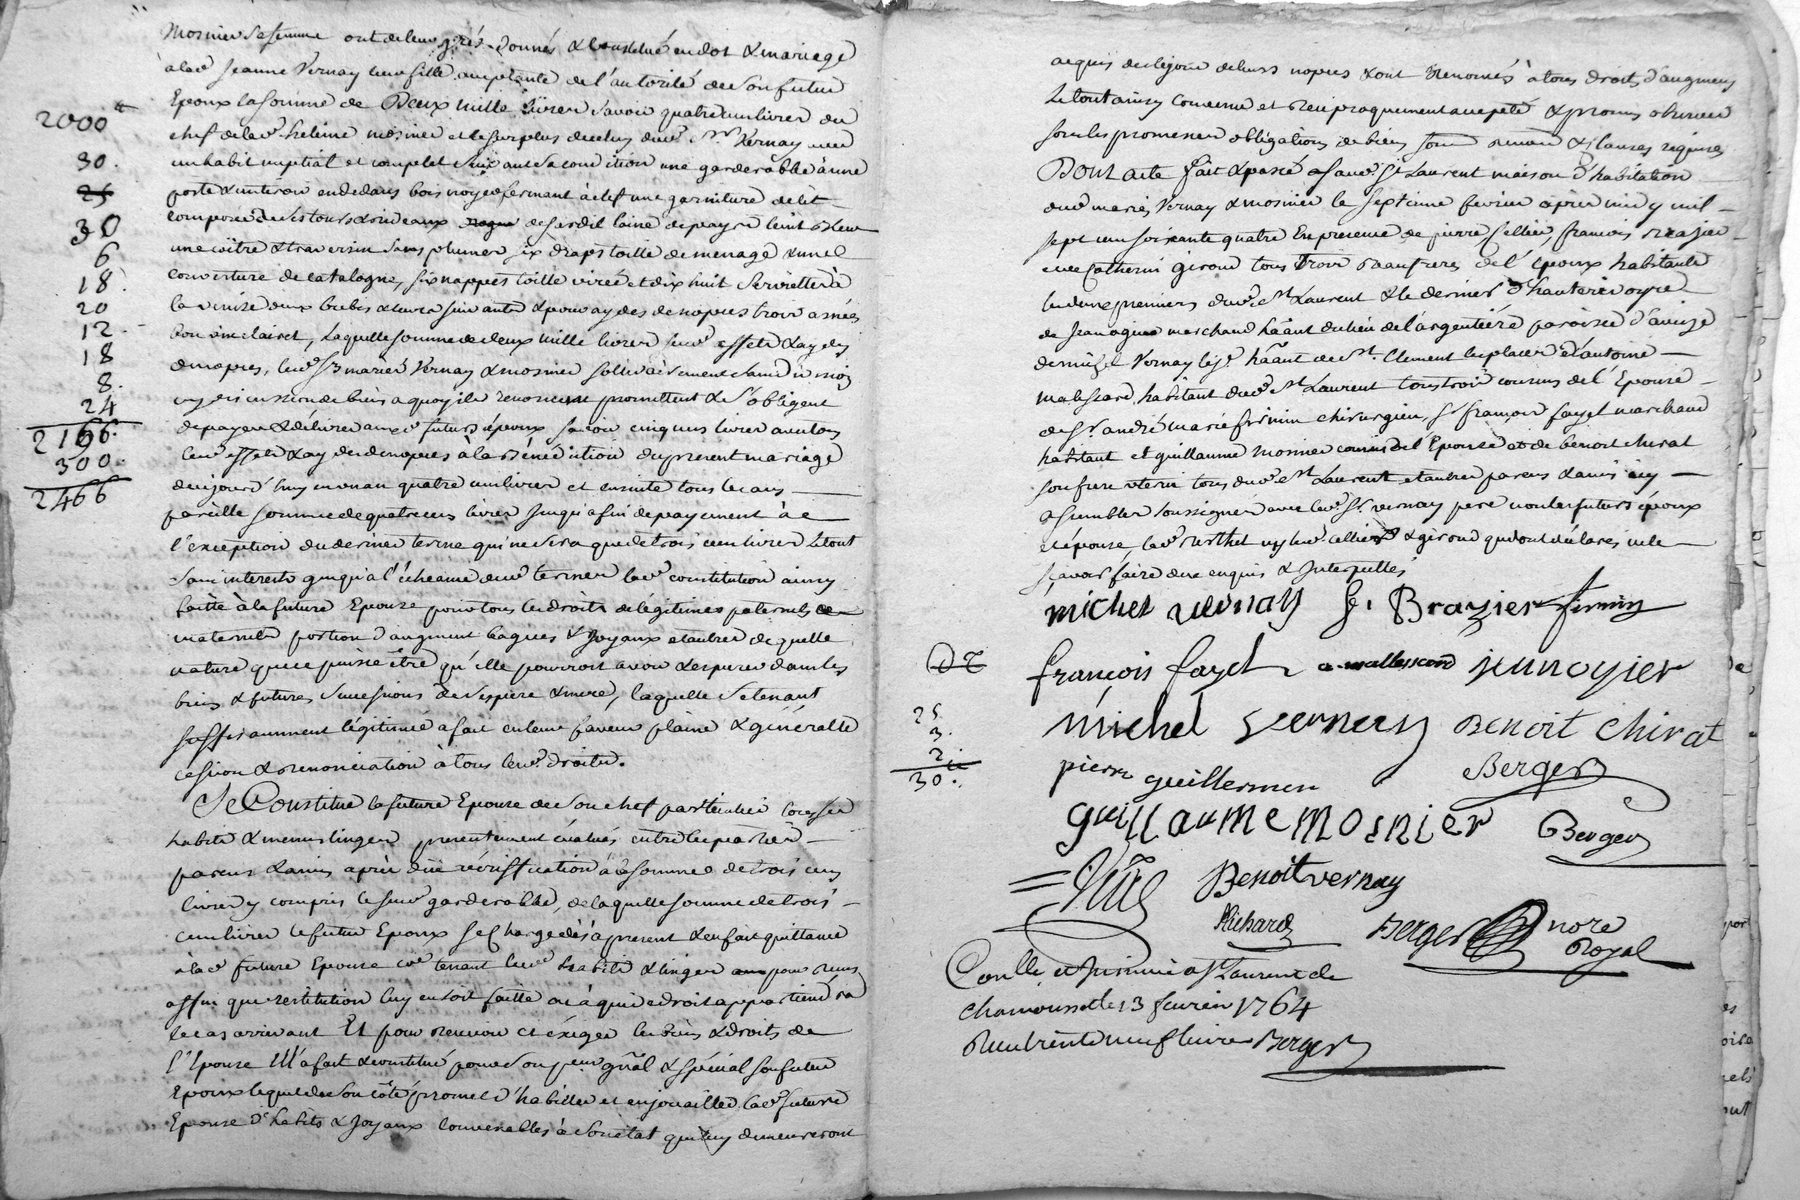 mosnier sa femme ont de leur grés donnés & constitué en dot & mariage
à lad. Jeanne Vernay leur fille acceptante de l'autorité de son futur
Epoux la somme de Deux mille livres savoir quatre cens livres du
chef de lad. heleine mosnier et le surplus de celuy dud. Sr Vernay
un habit nuptial et complet suivant sa condition une garderobbe à une
porte & un tiroir en dedans bois noyer fermant à clef une garniture de lit
composée de ses tours & rideaux de laine de pays teint bleu
une coitre & traversin sans plumes six draps toille de menage & une
couverture de catalogne, six nappes toille et dix huit serviettes à
la venise deux brebis & leurs suivants & pour aydes de nopces trois asnées
bon vin clairet, laquelle somme de deux mille livres susd. effets & aydes
de nopces, lesd. Srs mariés Vernay & mosnier solidairement sans division
ny discussion de biens a quoy ils renoncent promettent & s'obligent
de payer & délivrer auxd. futurs époux savoir cinq cens livres avec tous
lesd. effets & aydes de nopces à la bénédiction du present mariage
d'aujourd'huy en un an quatre cens livres et ensuite tous les ans
pareille somme de quatre cens livres jusqu'a fin de payement à
l'exception du dernier terme qui ne sera que de trois cens livres le tout
sans interests jusqu'a l'écheance dud. termes lad. constitution ainsy
faitte à la future Epouse pour tous les droits de légitimes paternels
maternels portion d'augment bagues & Joyaux & autres de quelle
nature que ce puisse être qu'elle pourroit avoir & esperer dans les
biens & futures successions de ses pere & mere, laquelle se tenant
suffisamment légitimée a fait en leur faveur plaine & généralle
cession & renonciation à tous lesd. droits.
Se Constitue la future Epouse de son chef particulier tous ses
habits & menus linges presentement évalués entre les parties
parens & amis après düe vériffication à la somme de trois cens
livres y compris le susd. garderobbe, de laquelle somme de trois
cens livres le futur Epoux se charge dès à present & en fait quittance
à lad. future Epouse tenant lesd. habits & linges pour reçus
affin que restitution luy en soit faitte ou à qui de droit appartiendra
le cas arrivant Et pour recevoir et éxiger les biens & droits de
l'Epouse Ell'a fait & constitué pour son pcur gñal & spécial son futur
Epoux lequel de son côté promet d'habiller et enjoailler lad. future
Epouse d'habits & Joyaux convenables à son état qui luy demeureront
2000
30.
25
30
6
18
20
12
18
8.
24
2166.
300.
2466
acquis de légour de leurs nopces & ont renoncés à tous droits d'augmens
Le tout ainsy convenu et réciproquement accepté & promis observer
sous les promesses obligations de biens soum. renon. & clauses requises
Dont acte fait & passé aud. St Laurent maison d'habitation
dud. mariés Vernay & mosnier le septieme fevrier après midy mil
sept cens soixante quatre En presence de pierre Cellier, francois
et Catherin giroud tous trois beaufreres de l'époux habitants
les deux premiers dud. St Laurent & le dernier d'hauterivoyre
de Jean ogier marchand hãant du lieu de l'argentiére paroisse d'aveize
de michel Vernay hãant de St. Clement les places & d'antoine
malescard habitant dud. St Laurent tous trois cousins de l'Epouse
de Sr. andré marie firmin chirurgien, Sr françois fayet marchand
habitant et guillaume Mosnier cousin de l'Epouse & de benoit chirat
son frere uterin tous dud. St Laurent et autres parens & amis icy
assemblés soussignés avec led. Sr. vernay pere non les futurs époux
et épouse, lad. ny lesd. cellier & giroud qui ont déclarés ne le
sçavoir faire de ce enquis & Interpellés
michel vernay f. Brazier firmin
françois fayet a. mallescard jeunogier
michel vernay Benoit Chirat
pierre guillermin Berger
guillaume mosnier Berger
25.
3.
2.
30.
Benoit vernay
Richard Berger nore
Royal
Conllé et Insinué a St Laurent de
chamousset le 13 fevrier 1764
Reçu trente neuf livres Berger